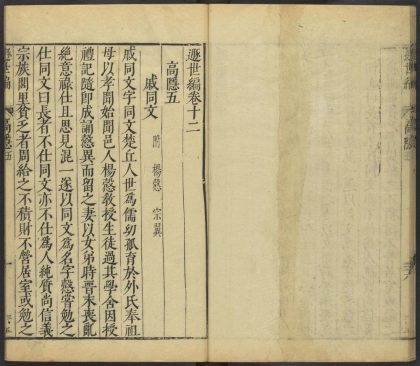 遯世編卷十二
高隱五
戚同文 附 楊慤 宗翼
戚同文字同文楚丘人世為儒幼孤育於外氏奉祖
母以孝聞始聞邑人楊慤教授生徒過其學舍因授
禮記隨即成誦慤異而留之妻以女弟時晉末喪亂
絕意祿仕且思見混一遂以同文為名字慤嘗勉之
仕同文曰長者不仕同文亦不仕為人純質尚信義
宗族閭里貧乏者周給之不積財不營居室或勉之
遯世編
高隱五
一